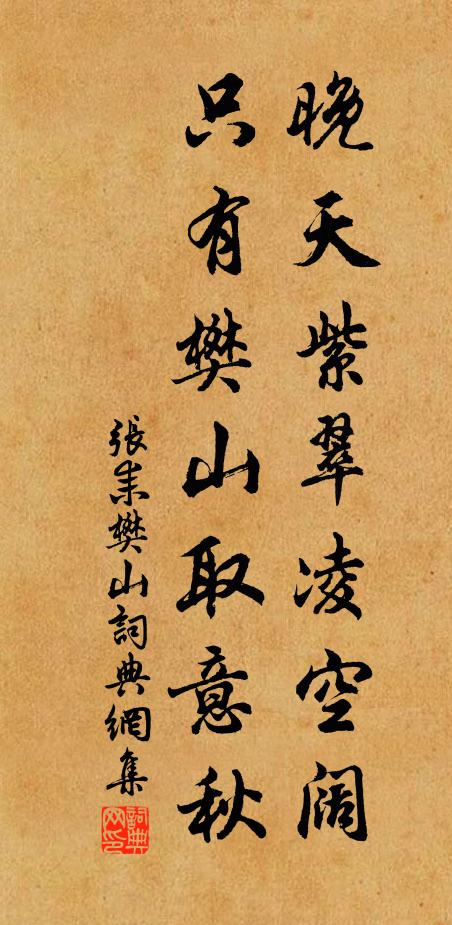 晚天紫翠凌空阔
只有樊山取意秋
張耒樊山詞典網集
詞典网印